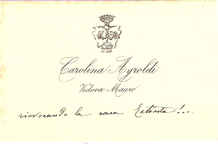 Carolina Ayroldi
Vedova Mauro
rievocando la cara Estinta!..